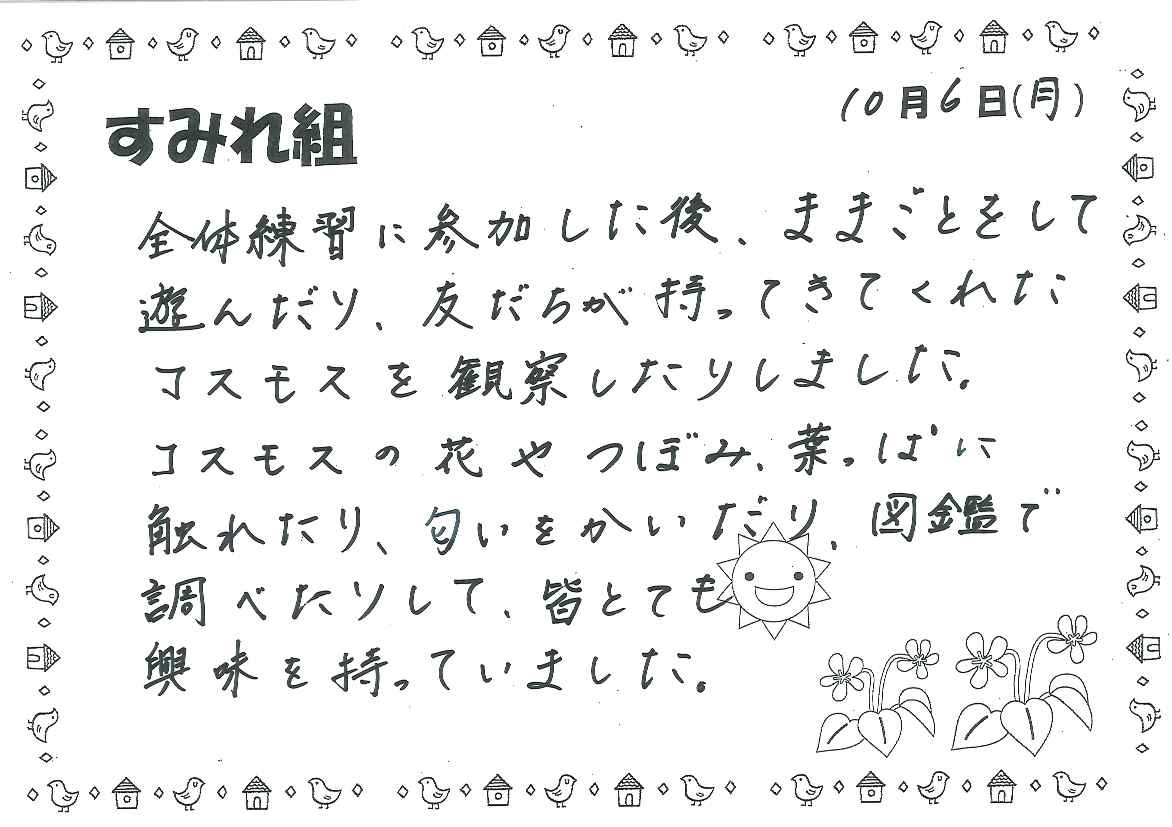 10月6日(月)
すみれ組
全体練習に参加した後、ままごとをして
遊んだり、友だちが持ってきてくれた
コスモスを観察したりしました。
コスモスの花やつぼみ、葉っぱに
触れたり、匂いをかいだり、図鑑で
調べたりして、皆とても
興味を持っていました。